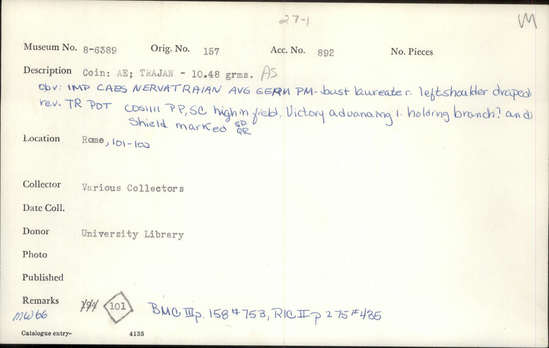 27-1
M
Museum No. 8-6389 Orig. No. 157 Acc. No. 892 No. Pieces
Description Coin: AE; TRAJAN - 10.48 grms. AS
obv: IMP CAES NERVATRAIAN AVG GERM PM- bust laureate r. left shoulder draped
rev. TR POT COSIIII PP, SC high in field, Victory advancing l. holding branch? and
Shield marked SP
QR
Location Rome, 101-102
Collector Various Collectors
Date Coll.
Donor University Library
Photo
Published
Remarks 101 BMC III p. 158 # 753, RIC II p 275 # 435
MW66
Catalogue entry- 4135